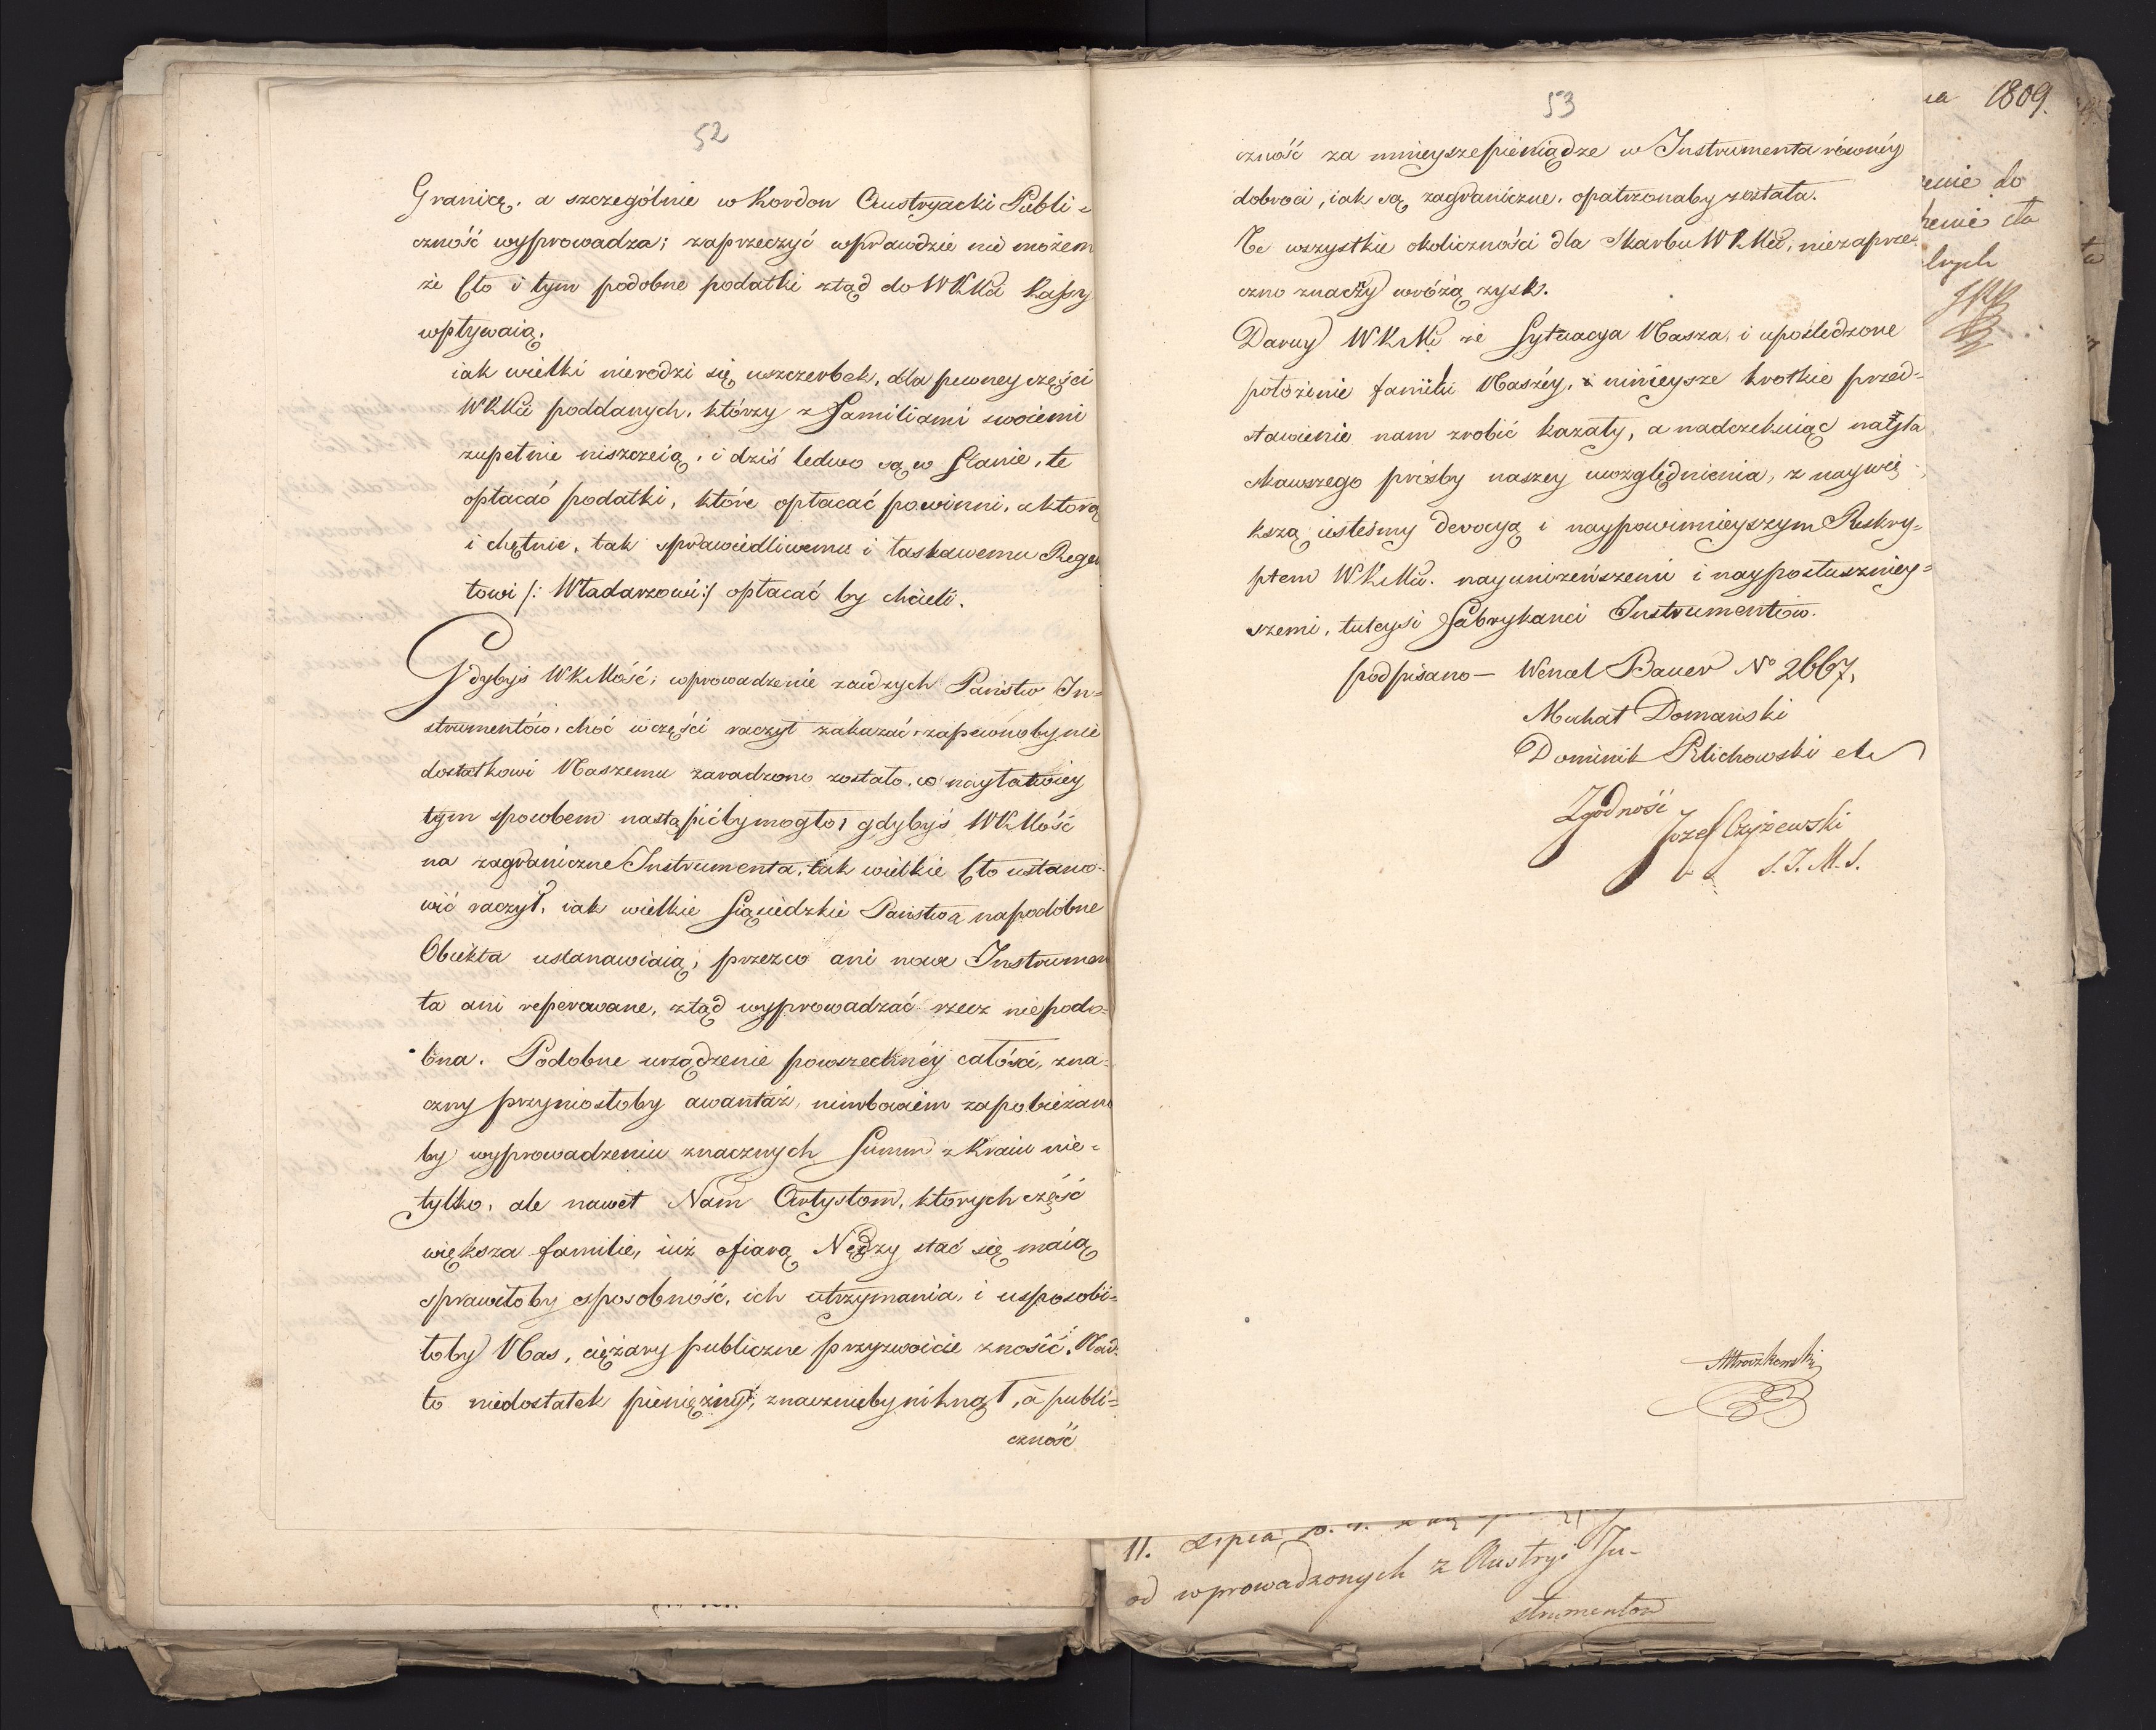 52
Granicę, a szczególnie w Kordon Austryacki Publi=
czność wyprowadza; zaprzeczyć wprawdzie nie możem
że Cło i tym podobne podatki ztąd do WKMci Kassy
wpływaią,
iak wielki nierodzi się uszczerbek, dla pewney części
WKMci poddanych, którzy z Familiami swoiemi
zupełnie niszczeią, i dziś ledwo są w Stanie, te
opłacać podatki, które opłacać powinni, a które
i chętnie, tak sprawiedliwemu i łaskawemu Regen
towi /: Władarzowi :/ opłacać by chcieli.
Gdybyś WKMość, wprowadzenie zaidzych Państw In=
strumentów, choć w części raczył zakazać, zapewnoby nie
dostatkowi Naszemu zaradzono zostało, co nayłatwiey
tym sposobem nastąpićby mogło, gdybyś WKMość
na zagraniczne Instrumenta, tak wielkie Cło ustano=
wić raczył, iak wielkie Sąsiedzkie Państwa na podobne
Obiekta ustanawiaią, przez co ani nowe Instrumen
ta ani reperowane, ztąd wyprowadzać rzecz niepodo=
bna. Podobne urządzenie powszechnéy całości, zna=
czny przyniosłoby awantaż, nimbowiem zapobieżano
by wyprowadzeniu znacznych Summ z Kraiu nie=
tylko, ale nawet Nam Artystom, których część
większa familie, iuż ofiarą Nędzy stać się maią
sprawiłoby sposobność, ich utrzymania, i usposobi=
łoby Nas, ciężary publiczne przyzwoicie znosić. Nad=
to niedostatek pieniężny, znacznieby niknął, a publi=
czność
53
czność za mnieysze pieniądze w Instrumenta równéy
dobroci, iak są zagraniczne, opatrzonaby została.
Te wszystkie okoliczności dla Skarbu WKMci, niezaprze=
czno znaczy wróżą zysk.
Daruy WKMć że Sytuacya Nasza, i upośledzone
położenie familii Naszéy, ninieysze krótkie przed=
stawienie nam zrobić kazały, a nadczekuiąc nayła
skawszego prośby naszey uwzględnienia, z naywię=
kszą iesteśmy dewocyą i naypowinnieyszym Reskry=
ptem WKMci. nayuniżeńszemi i nayposłuszniey=
szemi, tuteysi Fabrykanci Instrumentów.
podpisano – Wencel Bauer No 2667,
Michał Domański
Dominik Pelichowski etc
Zgodność
Jozef Czyżewski
S. J. M. S.
1809.
enie do
zenie cła
lnych
11. Lipca
od wprowadzonych z Austryi In-
strumentów